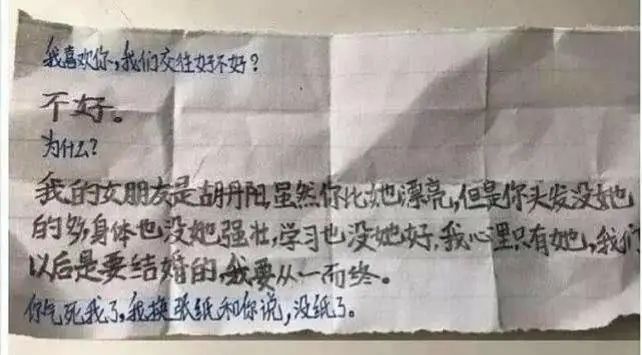 我喜欢你,我们交往好不好?
不好。
为什么?
我的女朋友是胡丹阳,虽然你比她漂亮,但是你头发没她
的多,身体也没她强壮,学习也没她好,我心里只有她,我们
以后是要结婚的,我要从一而终。
你气死我了,我换张纸和你说,没纸了。